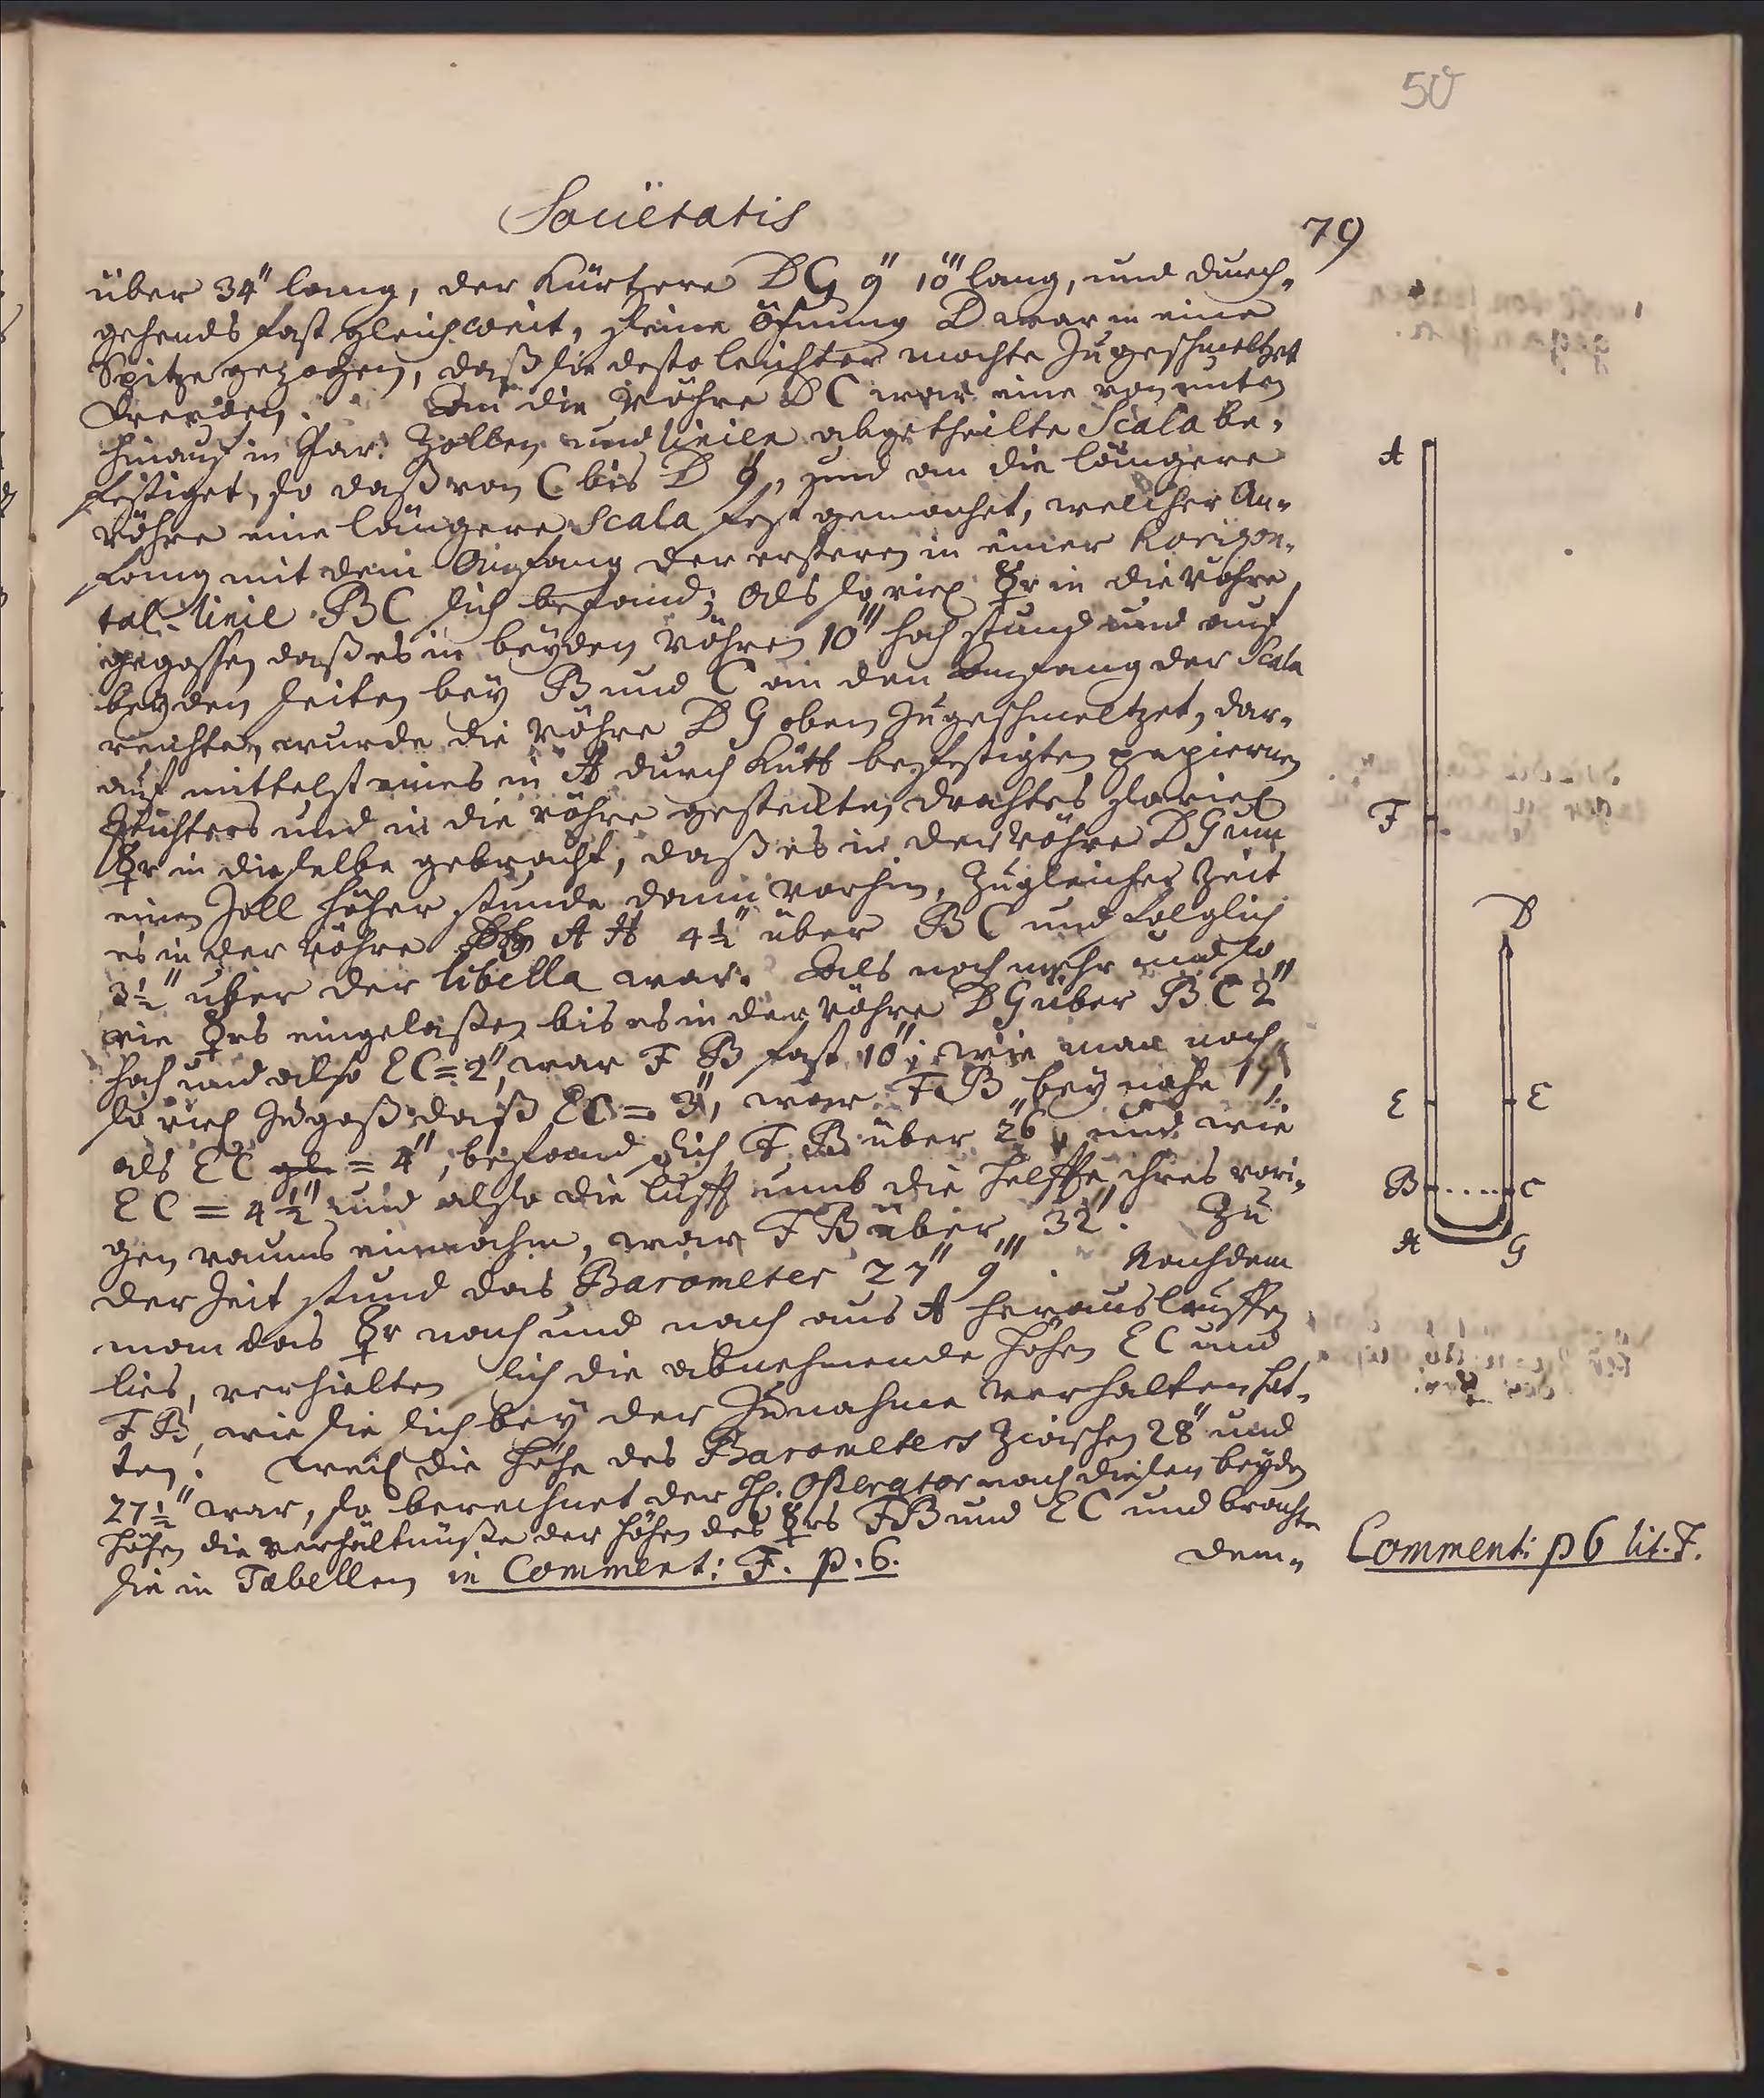 50
Societatis
79
über 34" lang, der kürtzere DG 9" 10''' lang, und durch-
gehends fast gleich weit, seine Öfnung D war in eine
Spitze gezogen, daß sie desto leichter mochte zugeschmeltzet
werden. An die Röhre DC war eine von unten
hinauf in Par. Zollen und Linien abgetheilte Scala be-
festiget, so daß von C bis D 9", und an die längere
Röhre eine längere Scala fest gemachet, welcher An-
fang mit dem Anfang der ersteren in einer horizon-
tal-linie BC sich befand; Als so viel ☿r in die Röhre
gegossen daß es in beyden Röhren 10''' hoch stund und auf
beyden seiten bey B und C an den Anfang der Scala
reichte, wurde die Röhre DG oben zugeschmeltzet, dar-
auf mittelst eines in A durch Kütt befestigten papiernen
Trichters und in die röhre gesteckten drahtes so viel
☿r in dieselbe gebracht, daß es in der Röhre DG um
einen Zoll höher stunde dann vorhin, zu gleicher Zeit
es in der Röhre A A 4½" über BC und folglich
3½" über der libella war. Als noch mehr und so
viel ☿rs eingelaßen bis es in der Röhre DG über BC 2"
hoch und also EC = 2", war FB fast 10"; wie man noch
so viel zugoß daß EC = 3", war FB bey nahe
als EC = 4", befand sich FB über 26" und wie
EC = 4½" und also die lufft umb die helffte ihres vori-
gen raums einnahm, war FB über 32". Zu
der Zeit stund das Barometer 27" 9'''. Nachdem
man das ☿r nach und nach aus A herauslauffen
lies, verhielten sich die abnehmende höhen EC und
FB, wie sie sich bey der Zunahme verhalten hat-
ten. Weil die höhe des Barometers zwischen 28" und
27½" war, so berechnet der H. Observator nach diesen beyden
höhen die verhältnüße der höhen des ☿rs FB und EC und brachte
sie in Tabellen in Comment: F. p. 6.
dem-
Comment: p 6 lit. F.
A
F
D
E
E
B
C
A
G